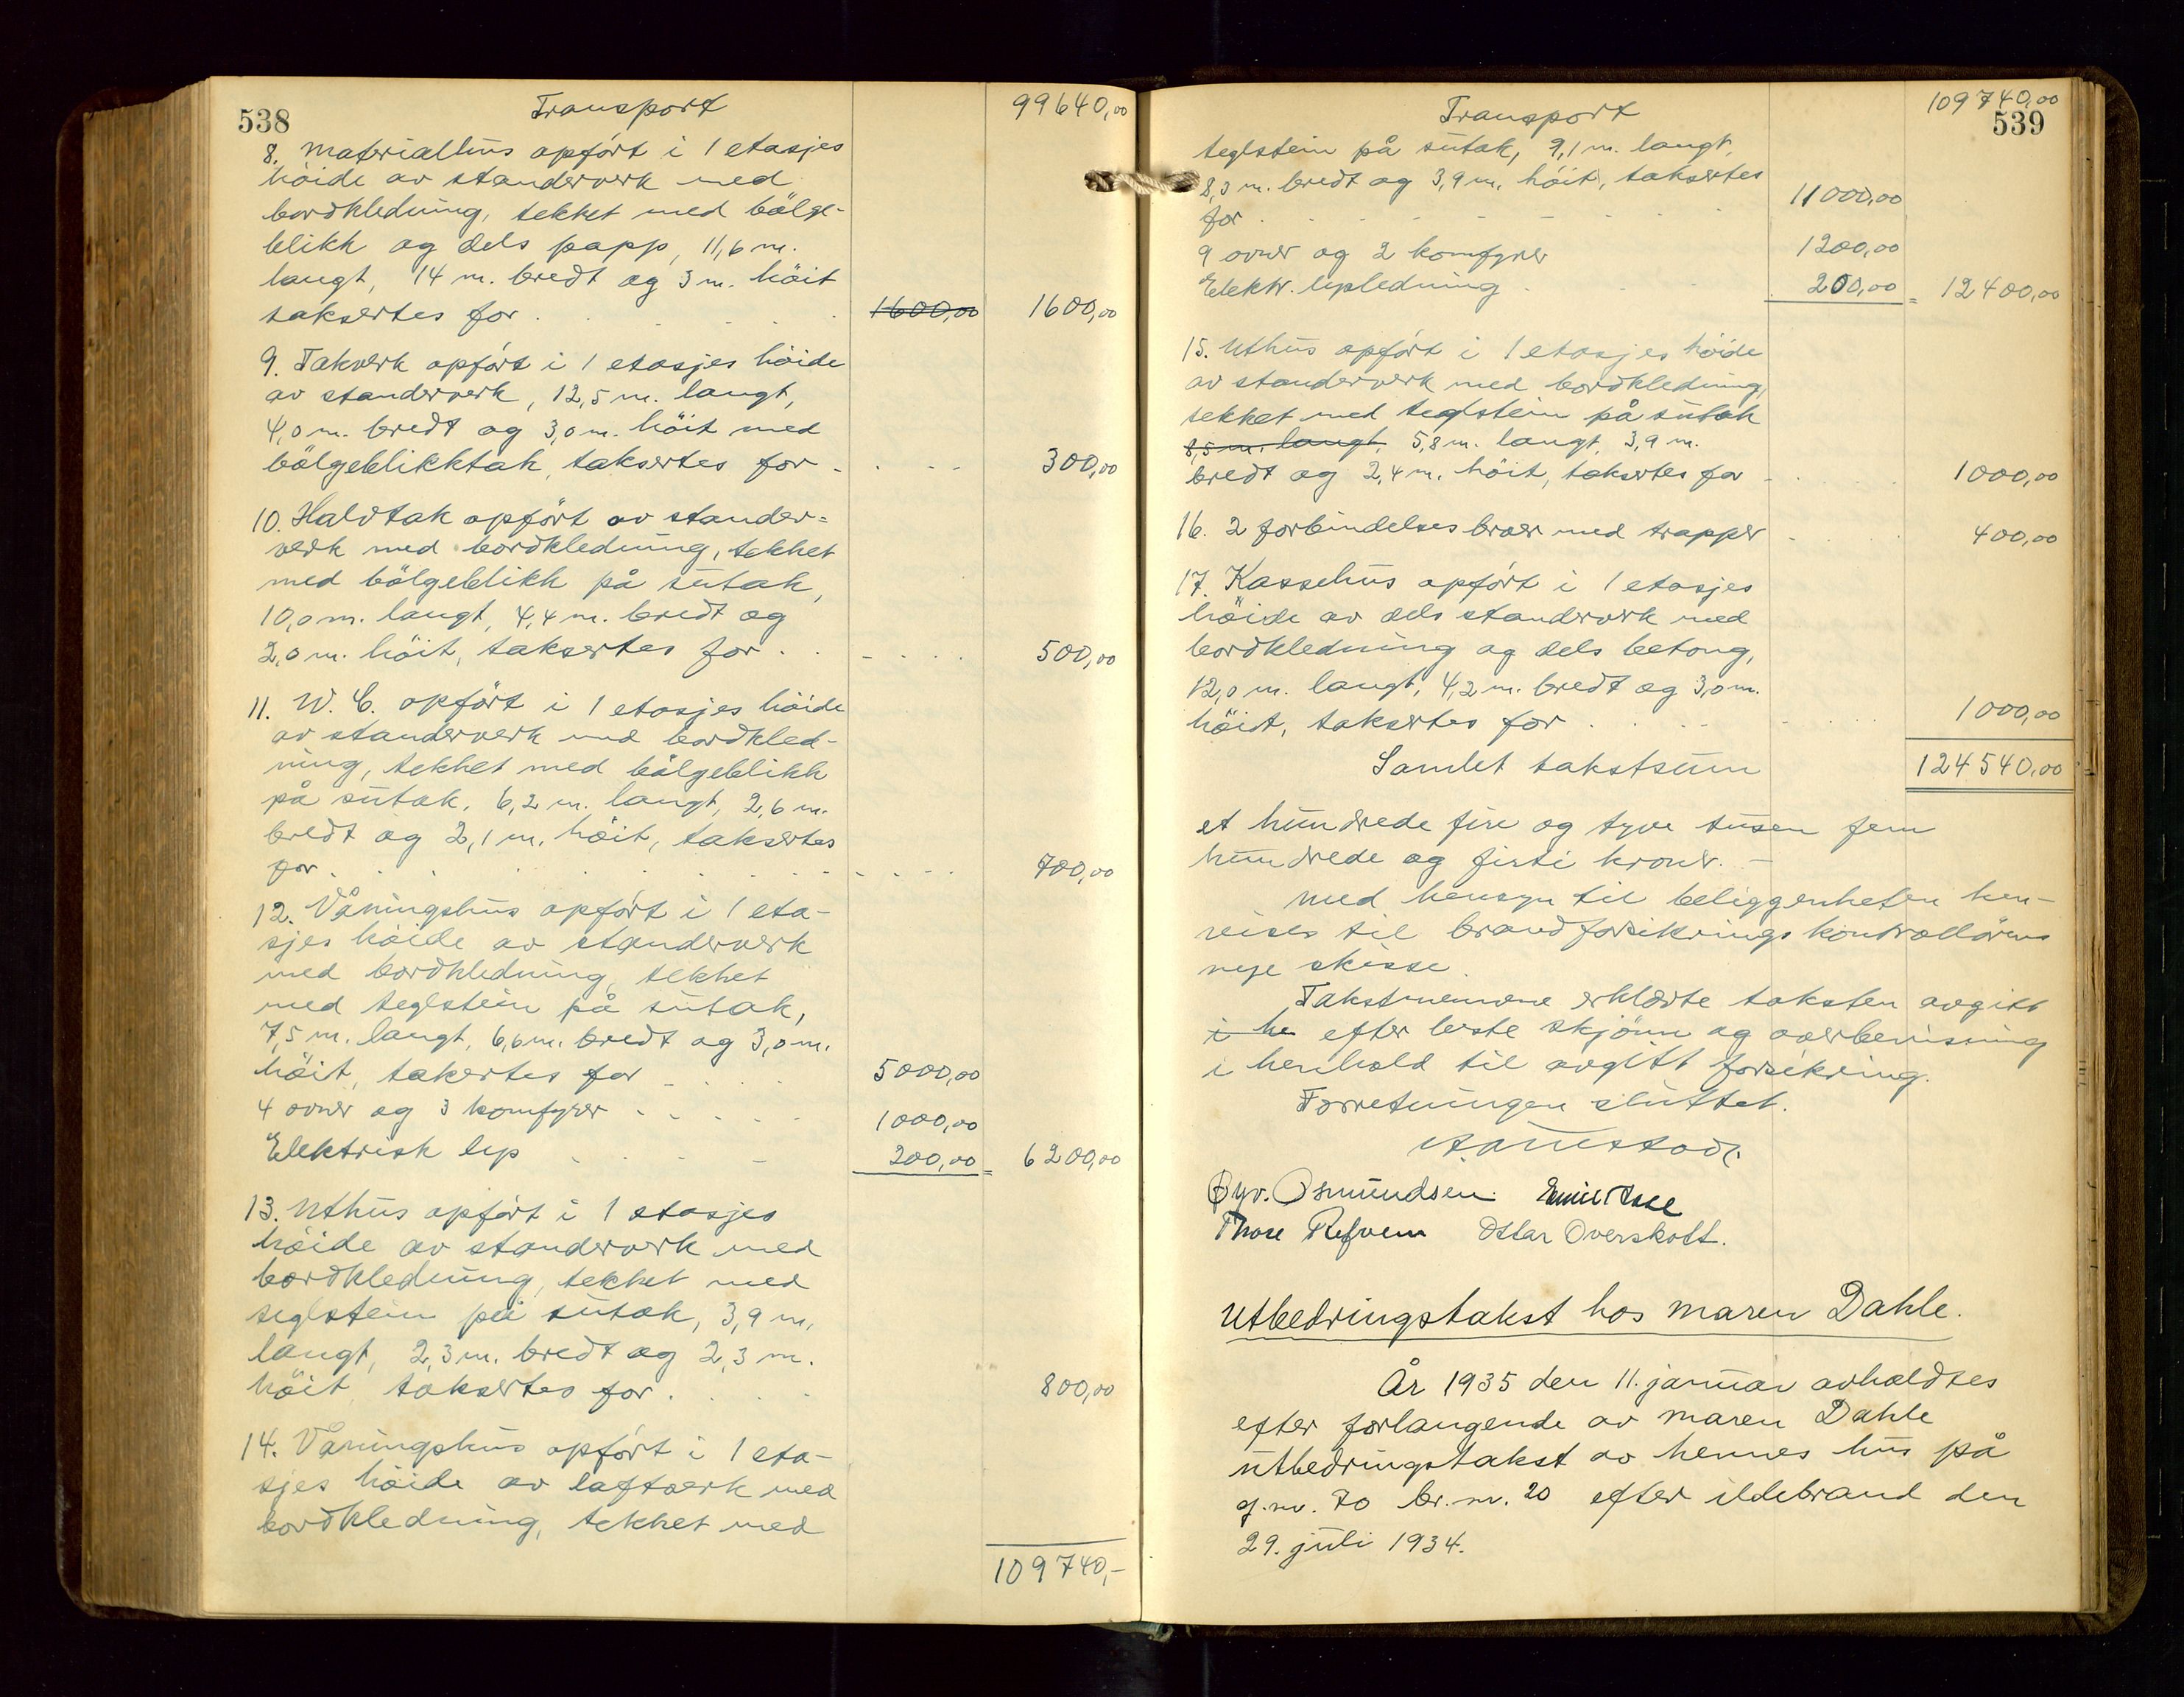 538
Transport 99640,00
8. Materialhus opført i 1 etasjes
høide av standerverk med
bordkledning, tekket med bølge-
blikk og dels papp, 11,6 m.
langt, 14 m. bredt og 3 m. høit
taksertes for . . . . . 1600,00 1600,00
9. Takverk opført i 1 etasjes høide
av standerverk, 12,5 m. langt,
4,0 m. bredt og 3,0 m. høit med
bølgeblikktak, taksertes for - . . . 300,00
10. Halvtak opført av stander=
verk med bordkledning, tekket
med bølgeblikk på sutak,
10,0 m. langt, 4,4 m. bredt og
2,0 m. høit, taksertes for . . . . . 500,00
11. W. C. opført i 1 etasjes høide
av standerverk med bordkled-
ning, tekket med bølgeblikk
på sutak. 6,2 m. langt, 2,6 m.
bredt og 2,1 m. høit, taksertes
for . . . . . . . 700,00
12. Våningshus opført i 1 eta-
sjes høide av standerverk
med bordkledning, tekket
med teglstein på sutak,
7,5 m. langt, 6,6 m. bredt og 3,0 m.
høit, taksertes for . . . . 5000,00
4 ovner og 3 komfyrer . . . . 1000,00
Elektrisk lys . . . . 200,00 = 6200,00
13. Uthus opført i 1 etasjes
høide av standerverk med
bordkledning, tekket med
teglstein på sutak, 3,9 m.
langt, 2,3 m. bredt og 2,3 m.
høit taksertes for . . . . 800,00
14. Våningshus opført i 1 eta-
sjes høide av laftverk med
bordkledning, tekket med
109740,-
Transport 109740,00
539
teglstein på sutak, 9,1 m. langt,
8,3 m. bredt og 3,9 m. høit, taksertes
for . . . . . . 11000,00
9 ovner og 2 komfyrer 1200,00
Elektr. lysledning . . . 200,00 = 12400,00
15. Uthus opført i 1 etasjes høide
av standerverk med bordkledning,
tekket med teglstein på sutak
8,5 m. langt, 5,8 m. langt, 3,9 m.
bredt og 2,4 m. høit, taksertes for . . . 1000,00
16. 2 forbindelsesbroer med trapper . . . 400,00
17. Kassehus opført i 1 etasjes
høide av dels standerverk med
bordkledning og dels betong,
12,0 m. langt, 4,2 m. bredt og 3,0 m.
høit, taksertes for . . . . . 1000,00
Samlet takstsum 124540,00
et hundrede fire og tyve tusen fem
hundrede og firti kroner. -
Med hensyn til beliggenheten hen-
vises til brandforsikringskontrollørens
nye skisse.
Takstmennene erklærte taksten avgitt
i he efter beste skjønn og overbevisning
i henhold til avgitt forsikring.
Forretningen sluttet.
Øyv. Osmundsen.
Refvem Oskar Overskott.
Utbedringstakst hos Maren Dahle.
År 1935 den 11. januar avholdtes
efter forlangende av Maren Dahle
utbedringstakst av hennes hus på
g.nr. 70 br.nr. 20 efter ildebrand den
29. juli 1934.